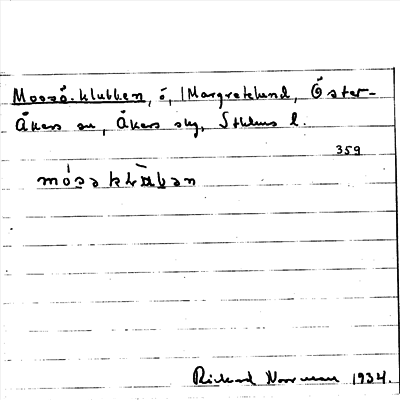 Mossö.klubben, ö, (Margretelund, Öster-
Åkers sn, Åkers skg, Sthlms l.
359
Richard Norrman 1934.